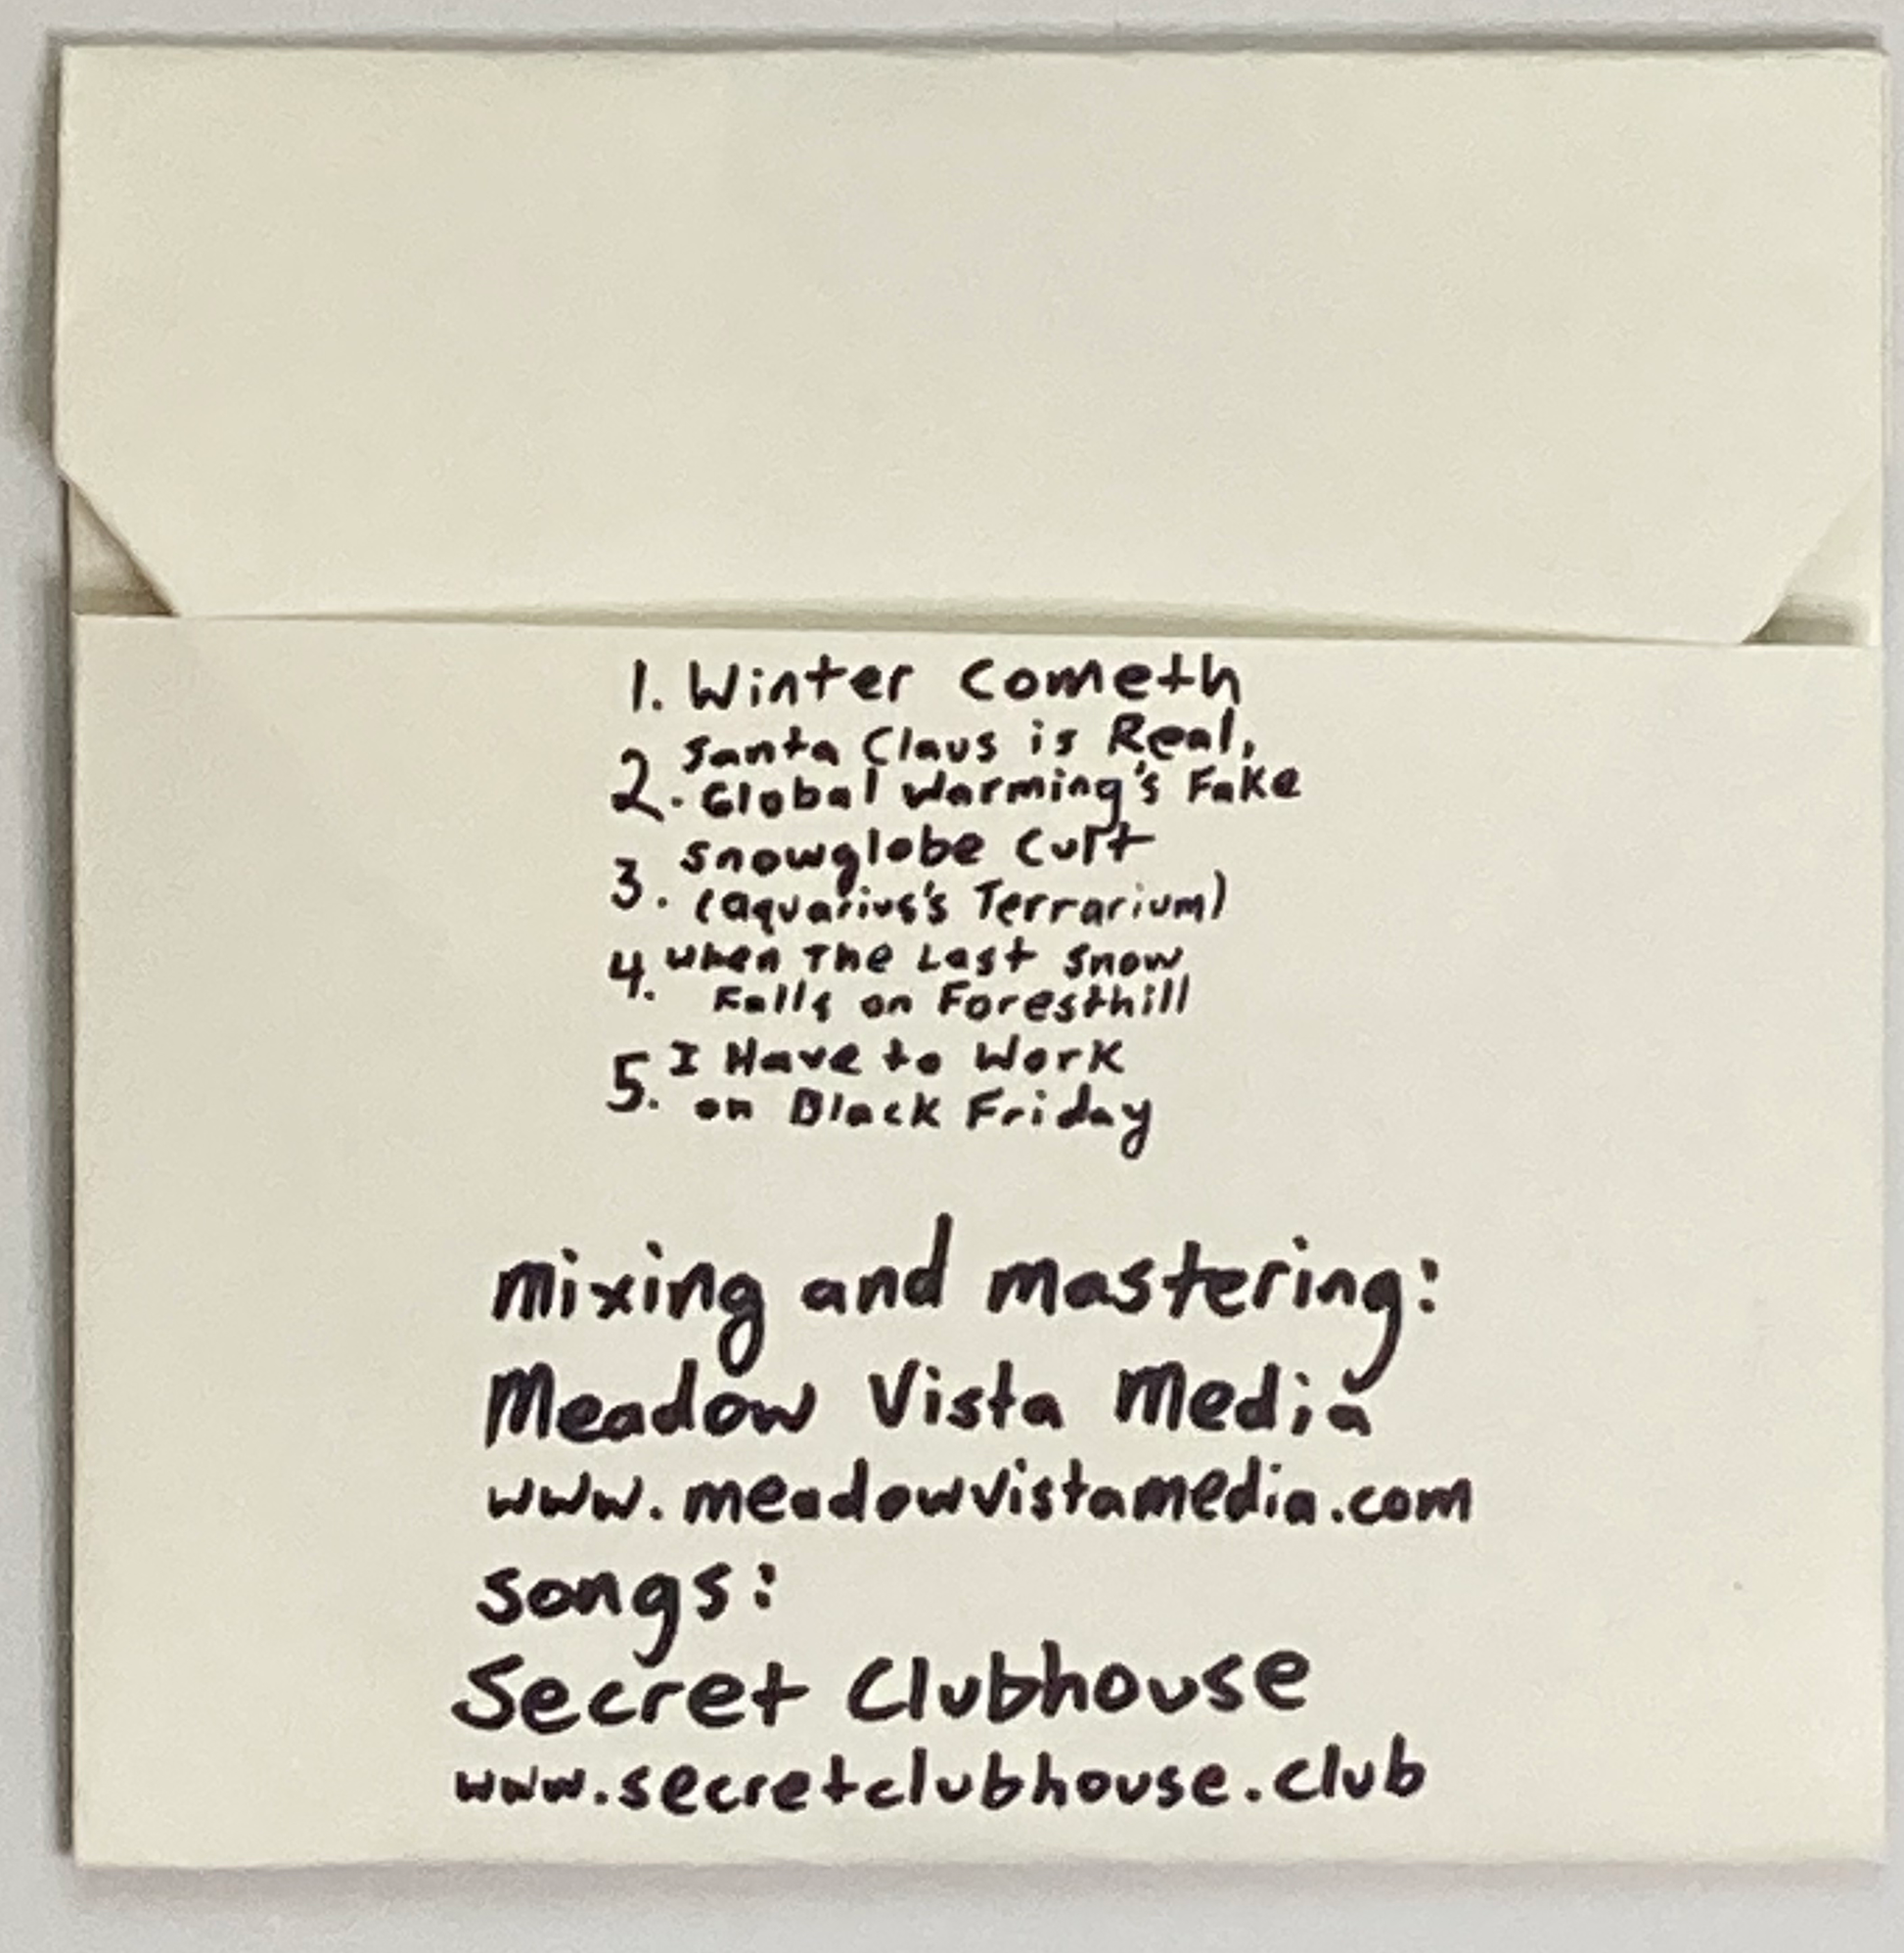 1. Winter Cometh
2. Santa Claus is Real,
Global Warming's Fake
3. Snowglobe Cult
(Aquarius's Terrarium)
4. When The Last Snow
Falls on Foresthill
5. I Have to Work
on Black Friday
mixing and mastering:
Meadow Vista Media
www.meadowvistamedia.com
songs:
Secret Clubhouse
www.secretclubhouse.club